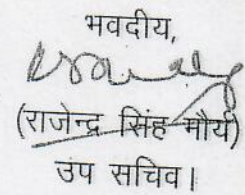 भवदीय,
(राजेन्द्र सिंह मौर्य)
उप सचिव।